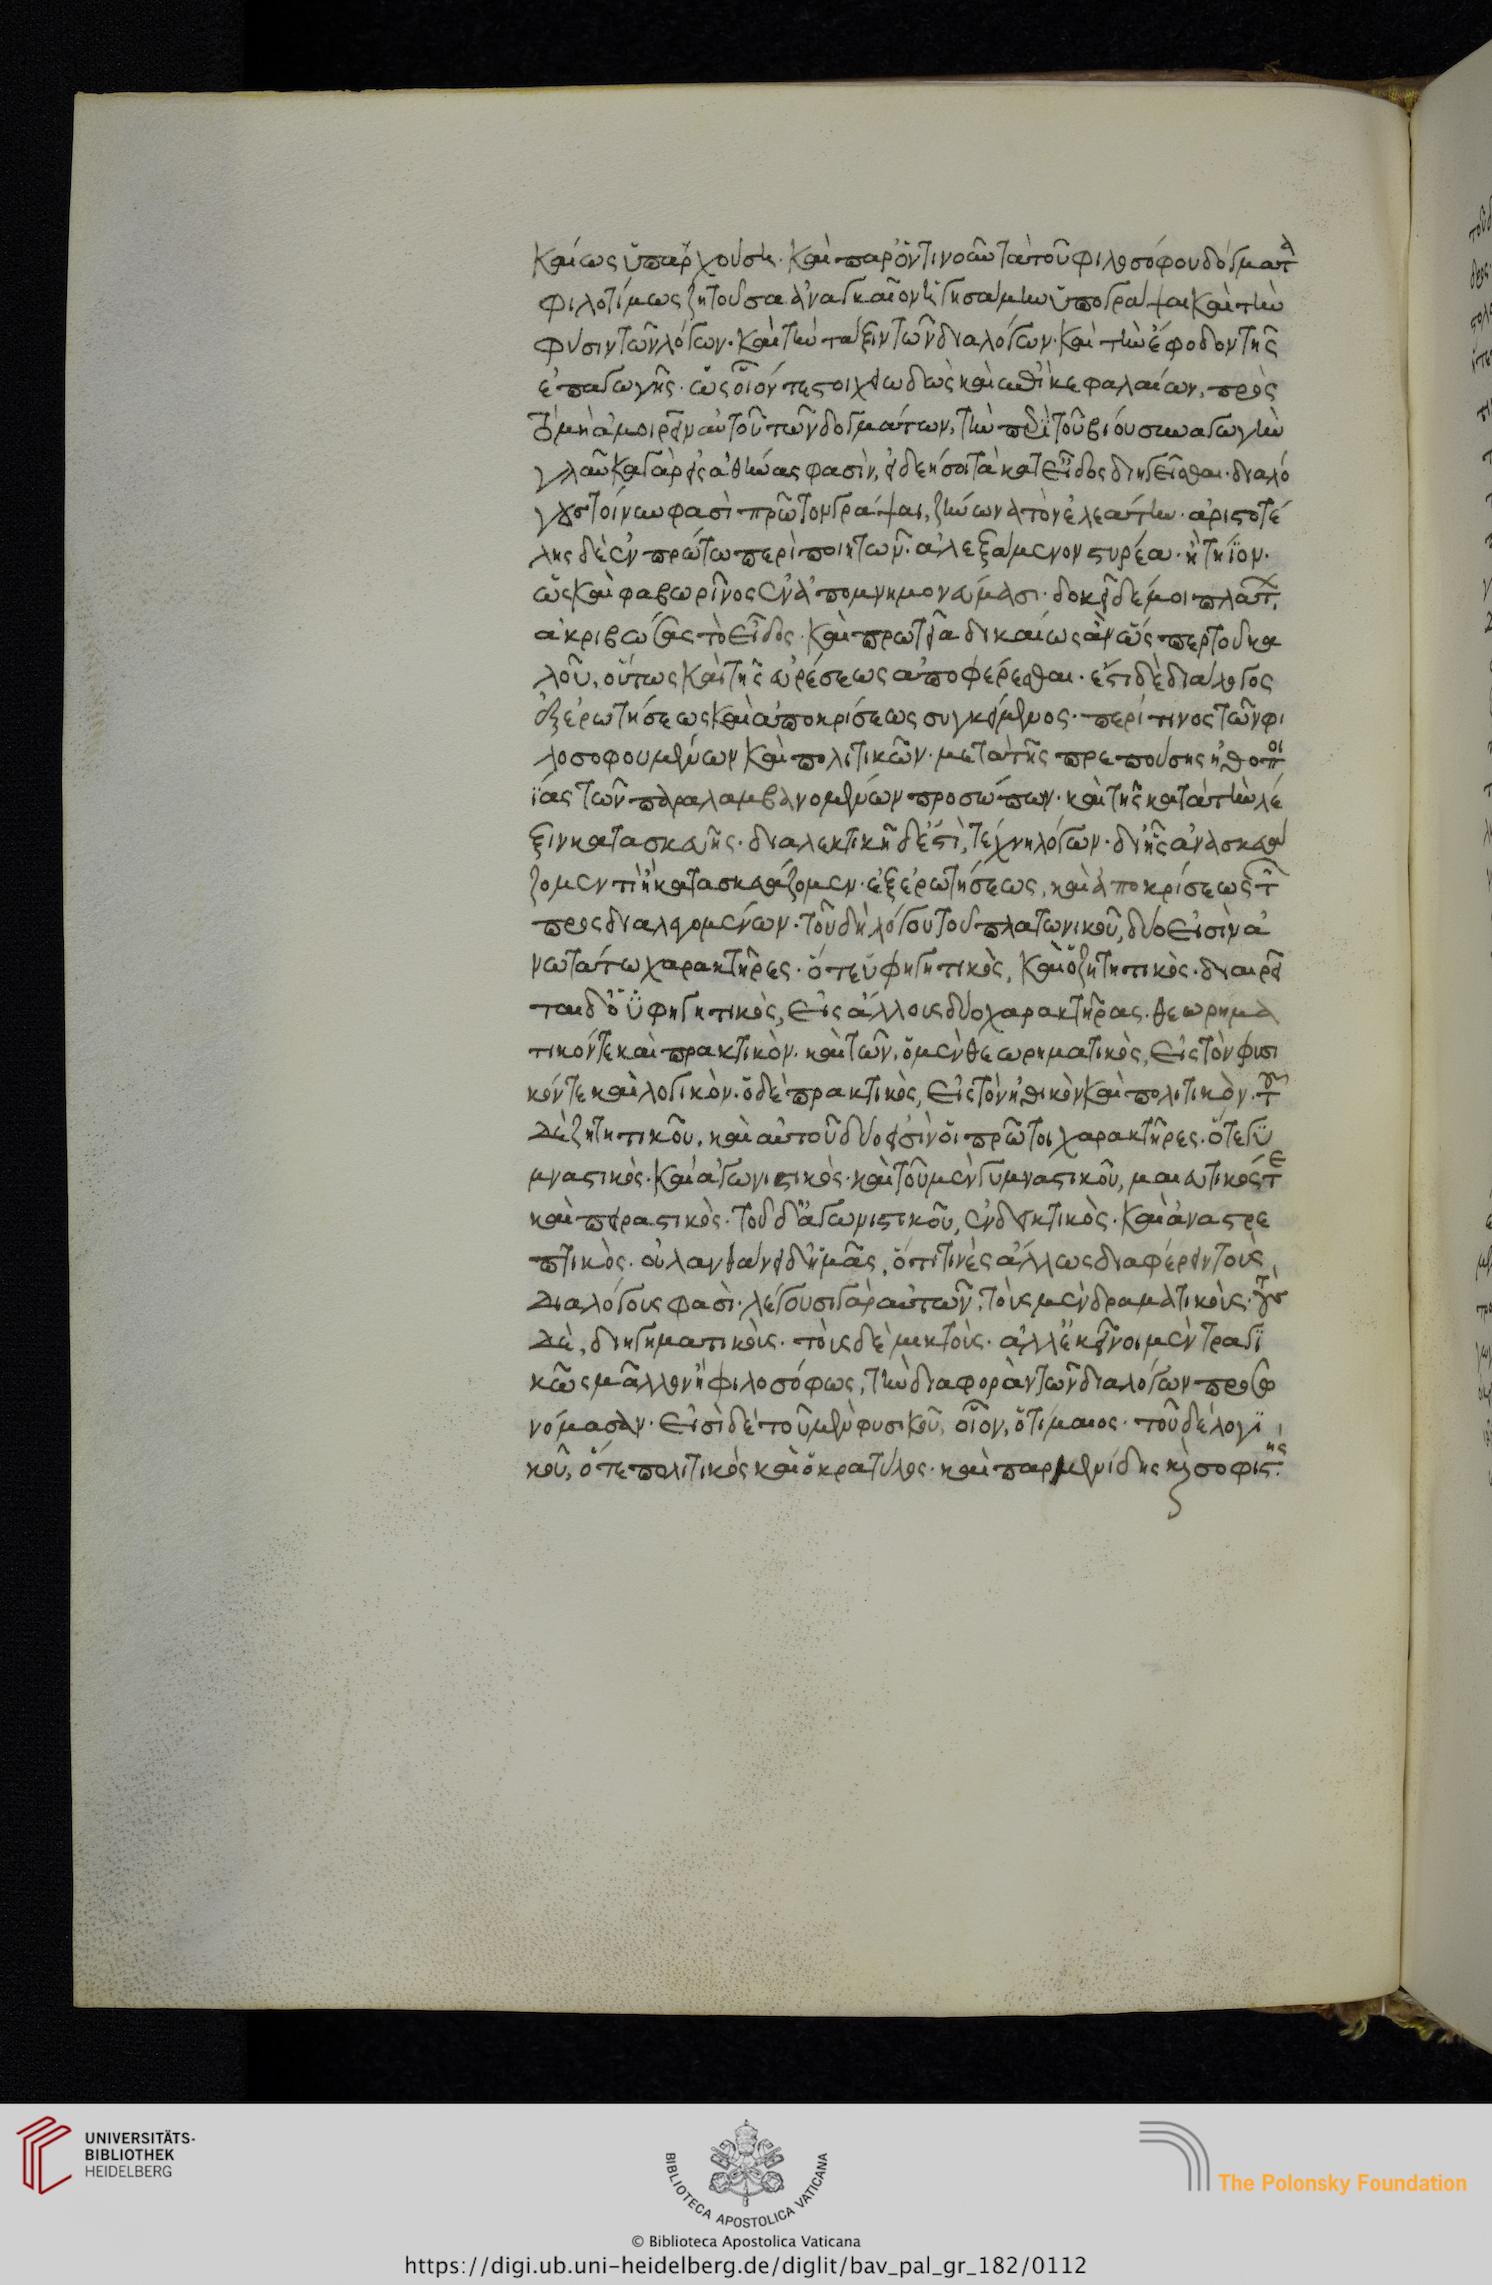 καίως ὑπαρχούση· καὶ παρ' ὁντινοῦν τὰ τοῦ φιλοσόφου δόγματα
φιλοτίμως ζητούσα ἀναγκαῖον ἡγησάμην ὑπογράψαι καὶ τὴν
φύσιν τῶν λόγων· καὶ τὴν τάξιν τῶν διαλόγων· καὶ τὴν ἔφοδον τῆς
ἐπαγωγῆς· ὡς οἷόν τε στοιχειωδῶς καὶ ἐπὶ κεφαλαίων, πρὸς
τὸ μὴ ἀμοιρεῖν αὐτοῦ τῶν δογμάτων, τὴν περὶ τοῦ βίου συναγωγὴν
γλαῦκα γὰρ εἰς ἀθήνας φασὶν, εἰ δεήσοι τὰ κατ εἶδος διηγεῖσθαι· διαλό
γους τοίνυν φασὶ πρῶτον γράψαι, ζήνωνα τὸν ἐλεάτην· ἀριστοτέ
λης δὲ ἐν πρώτω περὶ ποιητῶν· ἀλεξάμενον στυρέα· ἢ τήϊον·
ὡς καὶ φαβωρῖνος ἐν ἀπομνημονεύμασι· δοκεῖ δέ μοι πλάτων,
ἀκριβώσας τὸ εἶδος· καὶ πρωτεῖα δικαίως ἂν ὥσπερ τοῦ κα
λοῦ, οὕτως καὶ τῆς εὑρέσεως ἀποφέρεσθαι· ἔστι δὲ διάλογος
ἐξ ἐρωτήσεως καὶ ἀποκρίσεως συγκείμενος· περί τινος τῶν φι
λοσοφουμένων καὶ πολιτικῶν· μετὰ τῆς πρεπούσης ἠθοποι
ΐας τῶν παραλαμβανομένων προσώπων· καὶ τῆς κατὰ τὴν λέ
ξιν κατασκευῆς· διαλεκτικὴ δέ ἐστὶ, τέχνη λόγων· δι ἧς ἀνασκευά
ζομεν τὶ ἢ κατασκευάζομεν· ἐξ ἐρωτήσεως, καὶ ἀποκρίσεως τῶν
προσδιαλεγομένων· τοῦ δὴ λόγου τοῦ πλατωνικοῦ, δύο εἰσὶν ἀ
νωτάτω χαρακτῆρες· ὅ τε ὑφηγητικὸς, καὶ ὁ ζητητικὸς· διαιρεῖ
ται δ ὁ ὑφηγητικὸς, εἰς ἄλλους δύο χαρακτῆρας· θεωρημα
τικόν τε καὶ πρακτικὸν· καὶ τῶν, ὁ μὲν θεωρηματικὸς, εἰς τὸν φυσι
κόν τε καὶ λογικὸν· ὁ δὲ πρακτικὸς, εἰς τὸν ἠθικὸν καὶ πολιτικὸν· τοῦ
δὲ ζητητικοῦ, καὶ αὐτοῦ δύο εἰσὶν οἱ πρῶτοι χαρακτῆρες· ὅ τε γυ
μναστικὸς· καὶ ἀγωνιστικὸς· καὶ τοῦ μὲν γυμναστικοῦ, μαιευτικός τε
καὶ πειραστικὸς· τοῦ δὲ ἀγωνιστικοῦ, ἐνδεικτικὸς· καὶ ἀνατρε
πτικὸς· οὐ λανθάνει δ ἡμᾶς, ὅτι τινὲς ἄλλως διαφέρειν τοὺς
διαλόγους φασὶ· λέγουσι γὰρ αὐτῶν, τοὺς μὲν δραματικοὺς· τοὺς
δὲ, διηγηματικοὺς· τοὺς δὲ μικτοὺς· ἀλλ ἐκεῖνοι μὲν τραγι
κῶς μᾶλλον ἢ φιλοσόφως, τὴν διαφορὰν τῶν διαλόγων προσω
νόμασαν· εἰσὶ δὲ τοῦ μὲν φυσικοῦ, οἷον, ὁ τίμαιος· τοῦ δὲ λογι
κοῦ, ὅ τε πολιτικὸς καὶ ὁ κρατύλος· καὶ παρμενίδης καὶ σοφιστής·
UNIVERSITÄTS-
BIBLIOTHEK
HEIDELBERG
BIBLIOTECA APOSTOLICA VATICANA
The Polonsky Foundation
© Biblioteca Apostolica Vaticana
https://digi.ub.uni-heidelberg.de/diglit/bav_pal_gr_182/0112